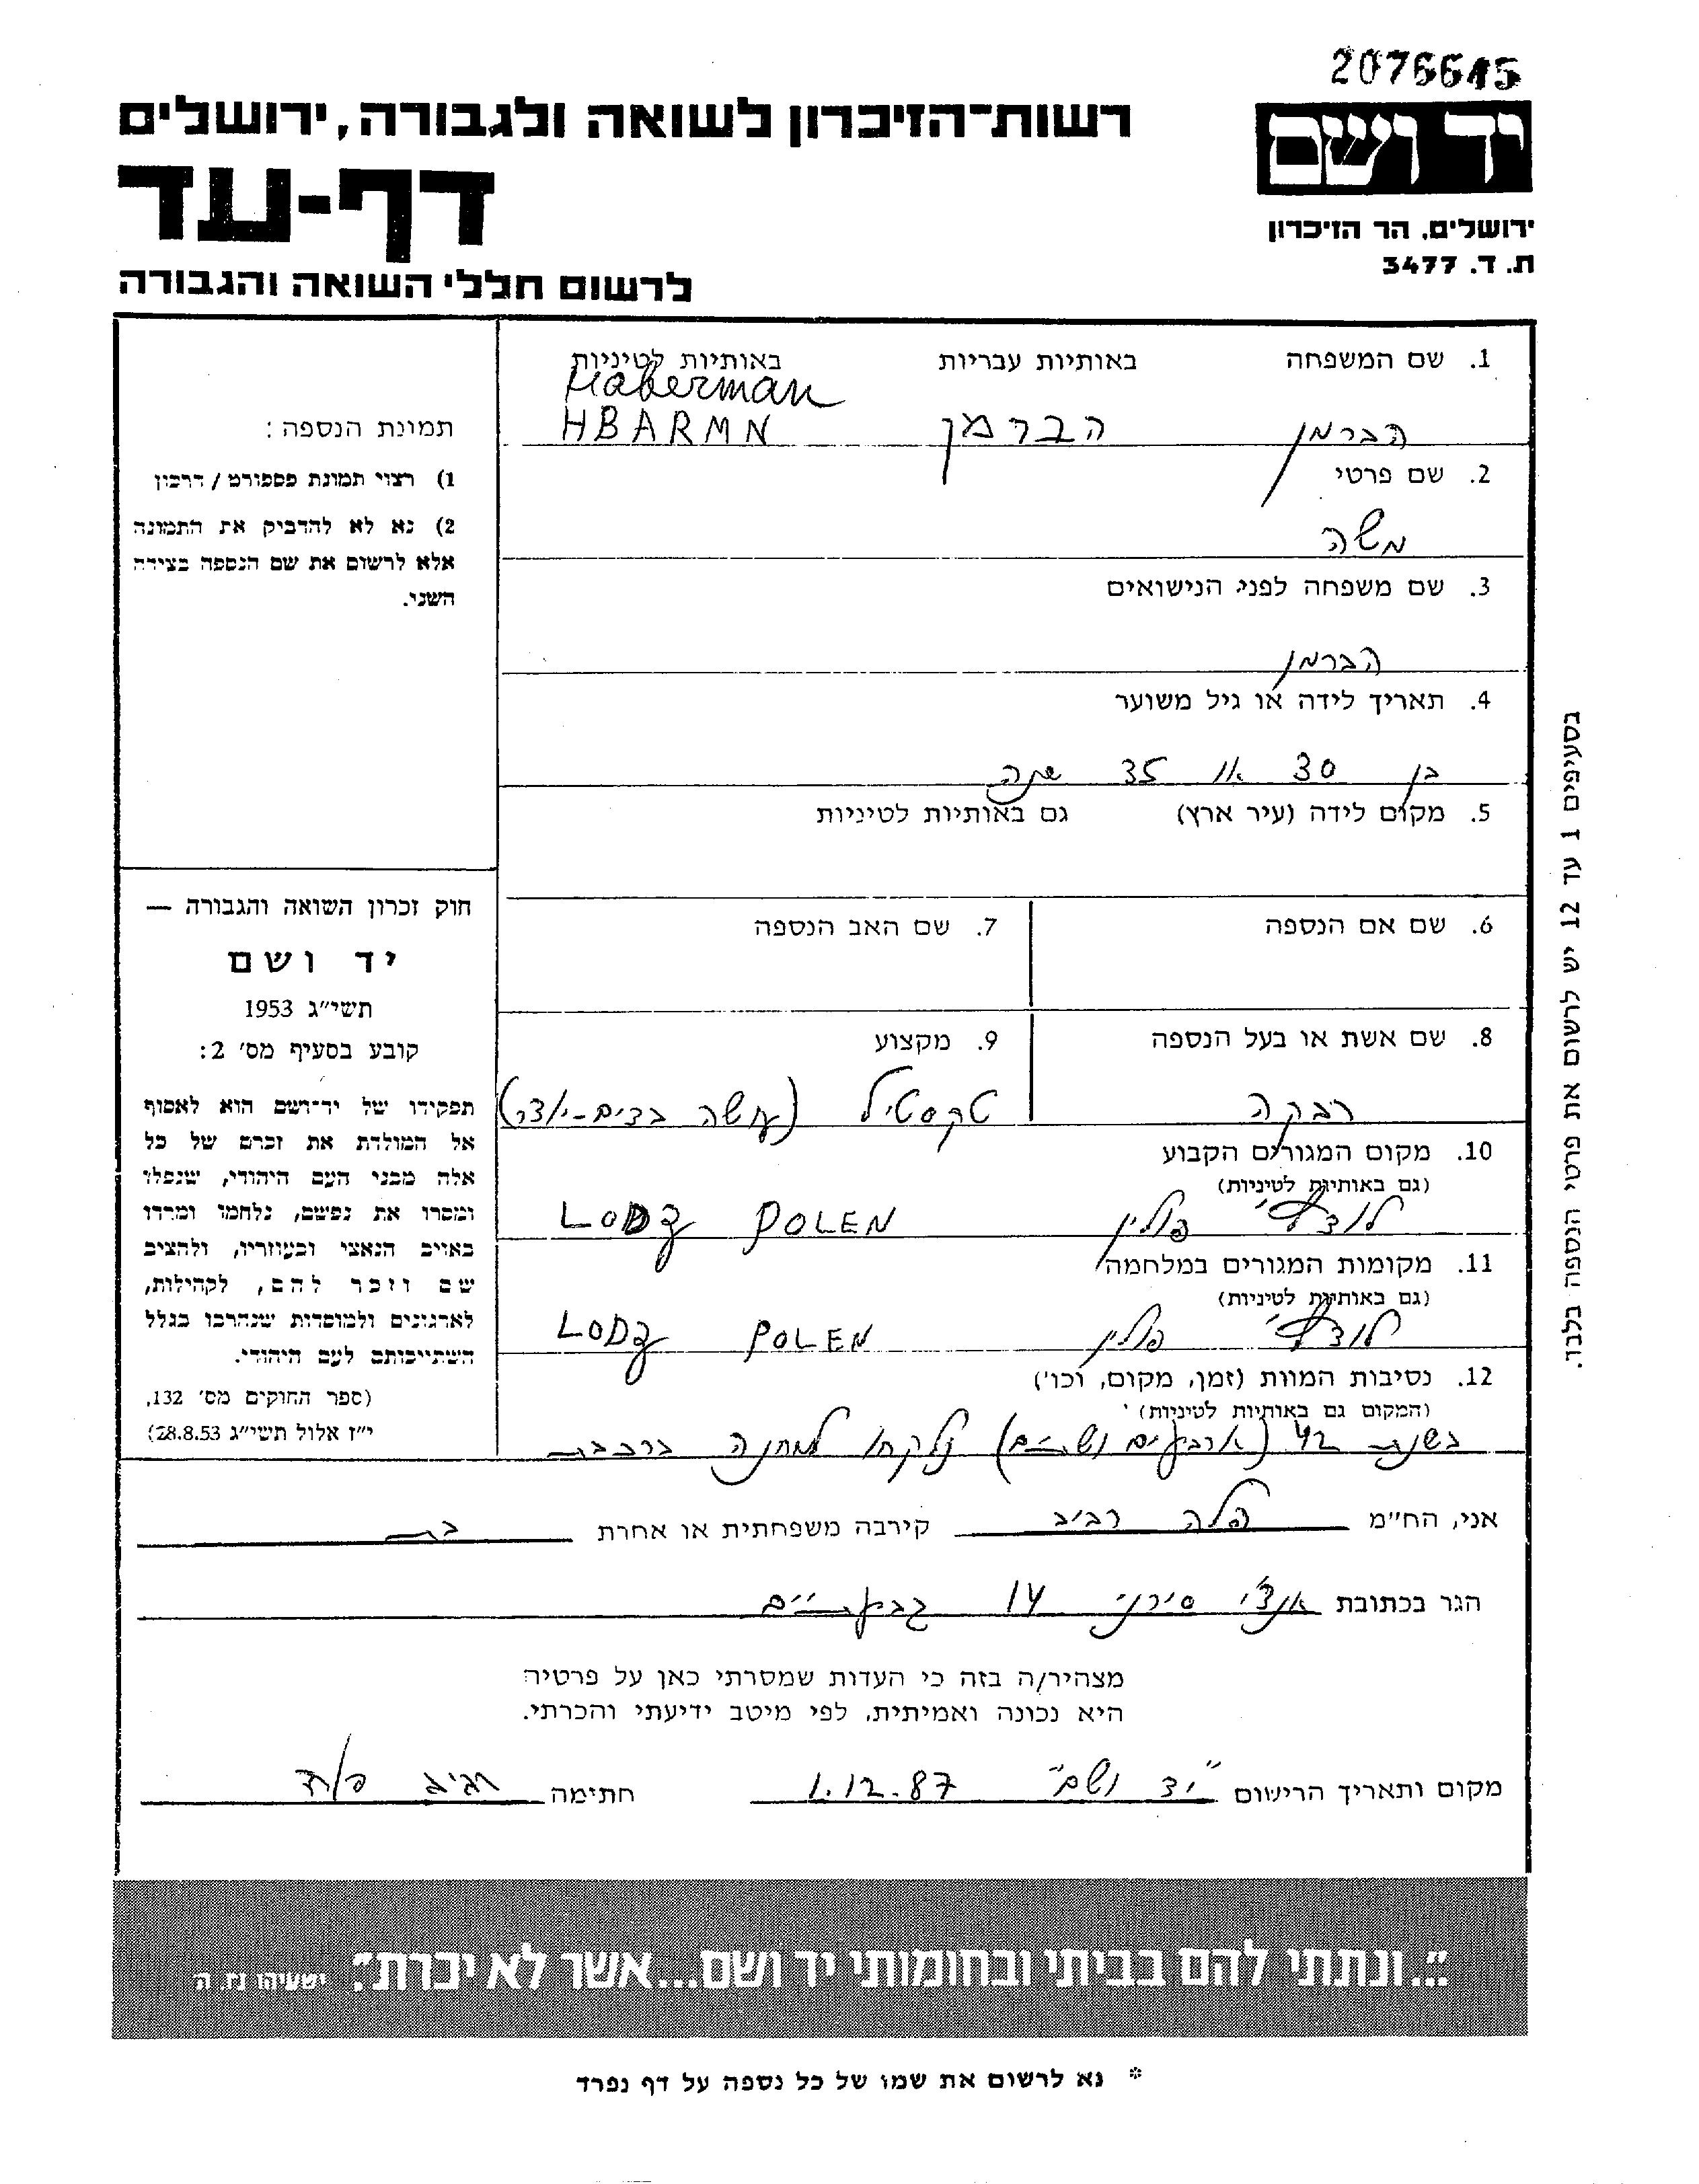 2076615
רשות־הזיכרון לשואה ולגבורה, ירושלים
יד ושם
דף-עד
ירושלים, הר הזיכרון
ת. ד. 3477
לרשום חללי השואה והגבורה
1. שם המשפחה באותיות עבריות באותיות לטיניות
Haberman
הברמן הברמן HBARMN
2. שם פרטי
משה
3. שם משפחה לפני הנישואים
הברמן
4. תאריך לידה או גיל משוער
בן 30 או 35 שנה
5. מקום לידה (עיר ארץ) גם באותיות לטיניות
6. שם אם הנספה 7. שם האב הנספה
8. שם אשת או בעל הנספה 9. מקצוע
רבקה טקסטיל (עשה בדים-יצר)
10. מקום המגורים הקבוע
(גם באותיות לטיניות)
לודז' פולין LODZ POLEN
11. מקומות המגורים במלחמה
(גם באותיות לטיניות)
לודז' פולין LODZ POLEN
12. נסיבות המוות (זמן, מקום, וכו')
(המקום גם באותיות לטיניות)
בשנת 42 (ארבעים ושתים) נלקחו למחנה ברכבת
תמונת הנספה:
1) רצוי תמונת פספורט / דרכון
2) נא לא להדביק את התמונה
אלא לרשום את שם הנספה בצידה
השני.
חוק זכרון השואה והגבורה —
יד ושם
תשי"ג 1953
קובע בסעיף מס' 2:
תפקידו של יד־ושם הוא לאסוף
אל המולדת את זכרם של כל
אלה מבני העם היהודי, שנפלו
ומסרו את נפשם, נלחמו ומרדו
באויב הנאצי ובעוזריו, ולהציב
שם וזכר להם, לקהילות,
לארגונים ולמוסדות שנהרבו בגלל
השתייכותם לעם היהודי.
(ספר החוקים מס' 132,
י"ז אלול תשי"ג 28.8.53)
בסעיפים 1 עד 12 יש לרשום את פרטי הנספה בלבד.
אני, הח"מ הלה רביב קירבה משפחתית או אחרת בת
הגר בכתובת אנצ'ו סירני 14 גבעתיים
מצהיר/ה בזה כי העדות שמסרתי כאן על פרטיה
היא נכונה ואמיתית, לפי מיטב ידיעתי והכרתי.
מקום ותאריך הרישום "יד ושם" 1.12.87 חתימה רביב
"...ונתתי להם בביתי ובחומותי יד ושם...אשר לא יכרת". ישעיהו נו, ה
* נא לרשום את שמו של כל נספה על דף נפרד